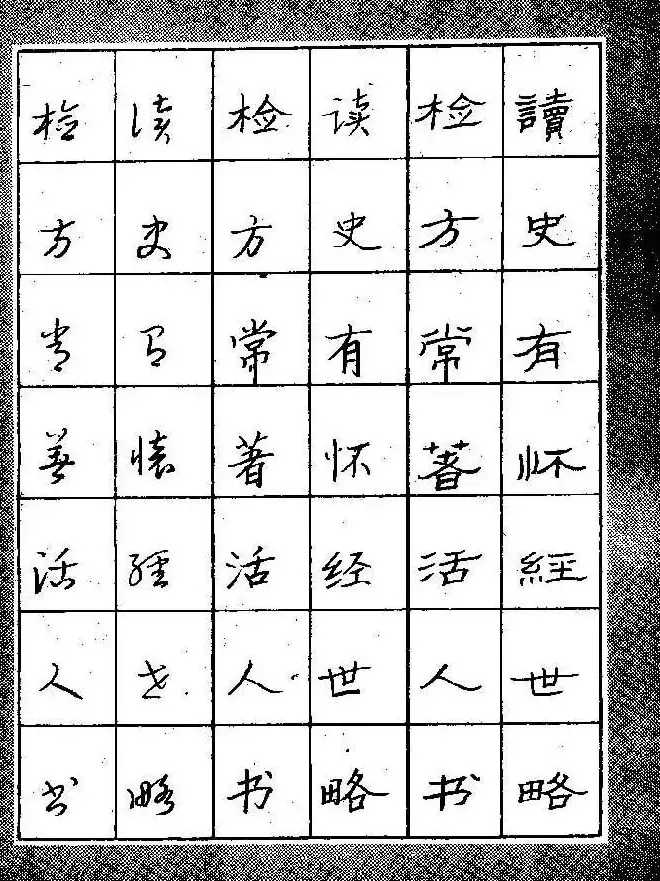 讀史有怀經世略
检方常著活人书
读史有怀经世略
检方常著活人书
读史有懷經世略
检方常著活人书